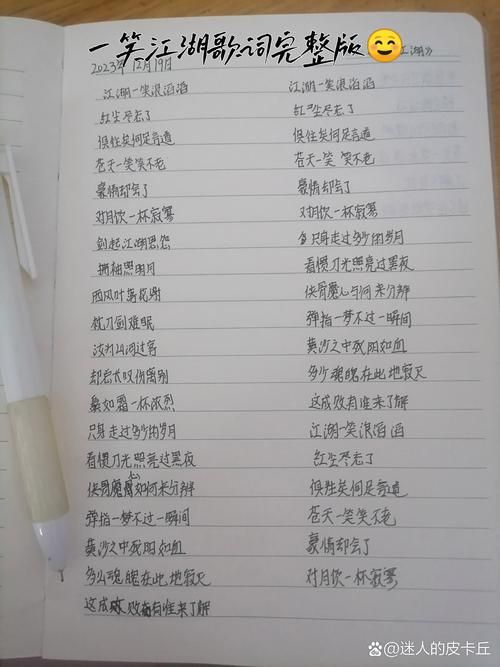 一笑江湖歌词完整版
2023年12月19日
江湖》
江湖一笑浪滔滔
红尘尽忘了
俱往矣何足言道
苍天一笑笑不老
豪情却会了
对月饮一杯寂寥
剑起江湖恩怨
拂袖照明月
西风叶落花谢
枕刀剑难眠
汝为山河过客
却总长叹伤离别
鬓如霜一杯浓烈
只身走过多少的岁月
看惯刀光照亮过黑夜
侠骨魔心如何来分辨
弹指一梦不过一瞬间
黄沙之中残阳如血
多少魂魄在此地寂灭
这成败有谁来了解
江湖一笑浪滔滔
红尘尽忘了
俱往矣何足言道
苍天一笑 笑不老
豪情却会了
对月饮一杯寂寥
只身走过多少的岁月
看惯刀光照亮过黑夜
侠骨魔心与何来分辨
弹指一梦不过一瞬间
黄沙之中残阳如血
多少魂魄在此地寂灭
这成败有谁来了解
江湖一笑浪滔滔
红尘尽忘了
俱往矣何足言道
苍天一笑笑不老
豪情却会了
对月饮一杯寂寥
迷人的皮卡丘